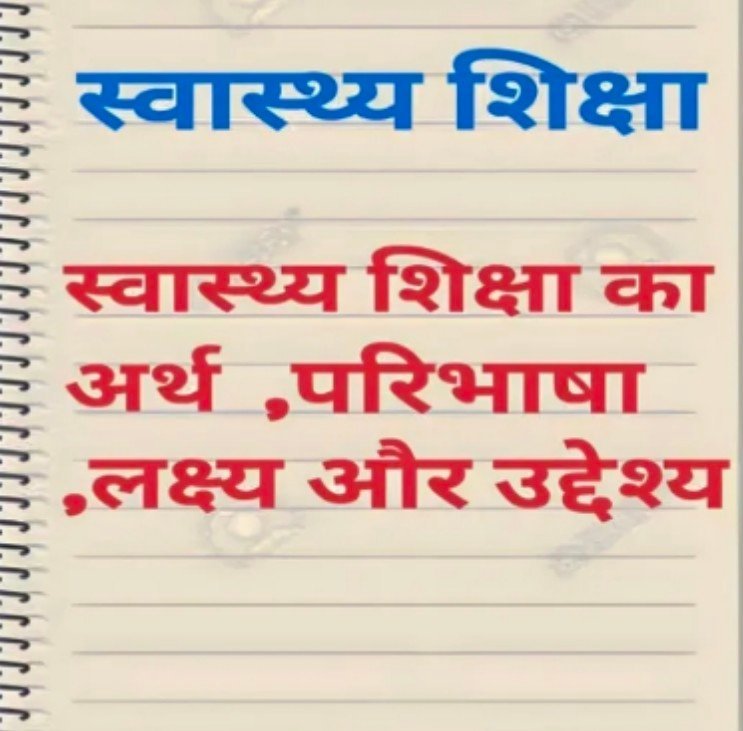 स्वास्थ्य शिक्षा
स्वास्थ्य शिक्षा का
अर्थ ,परिभाषा
,लक्ष्य और उद्देश्य